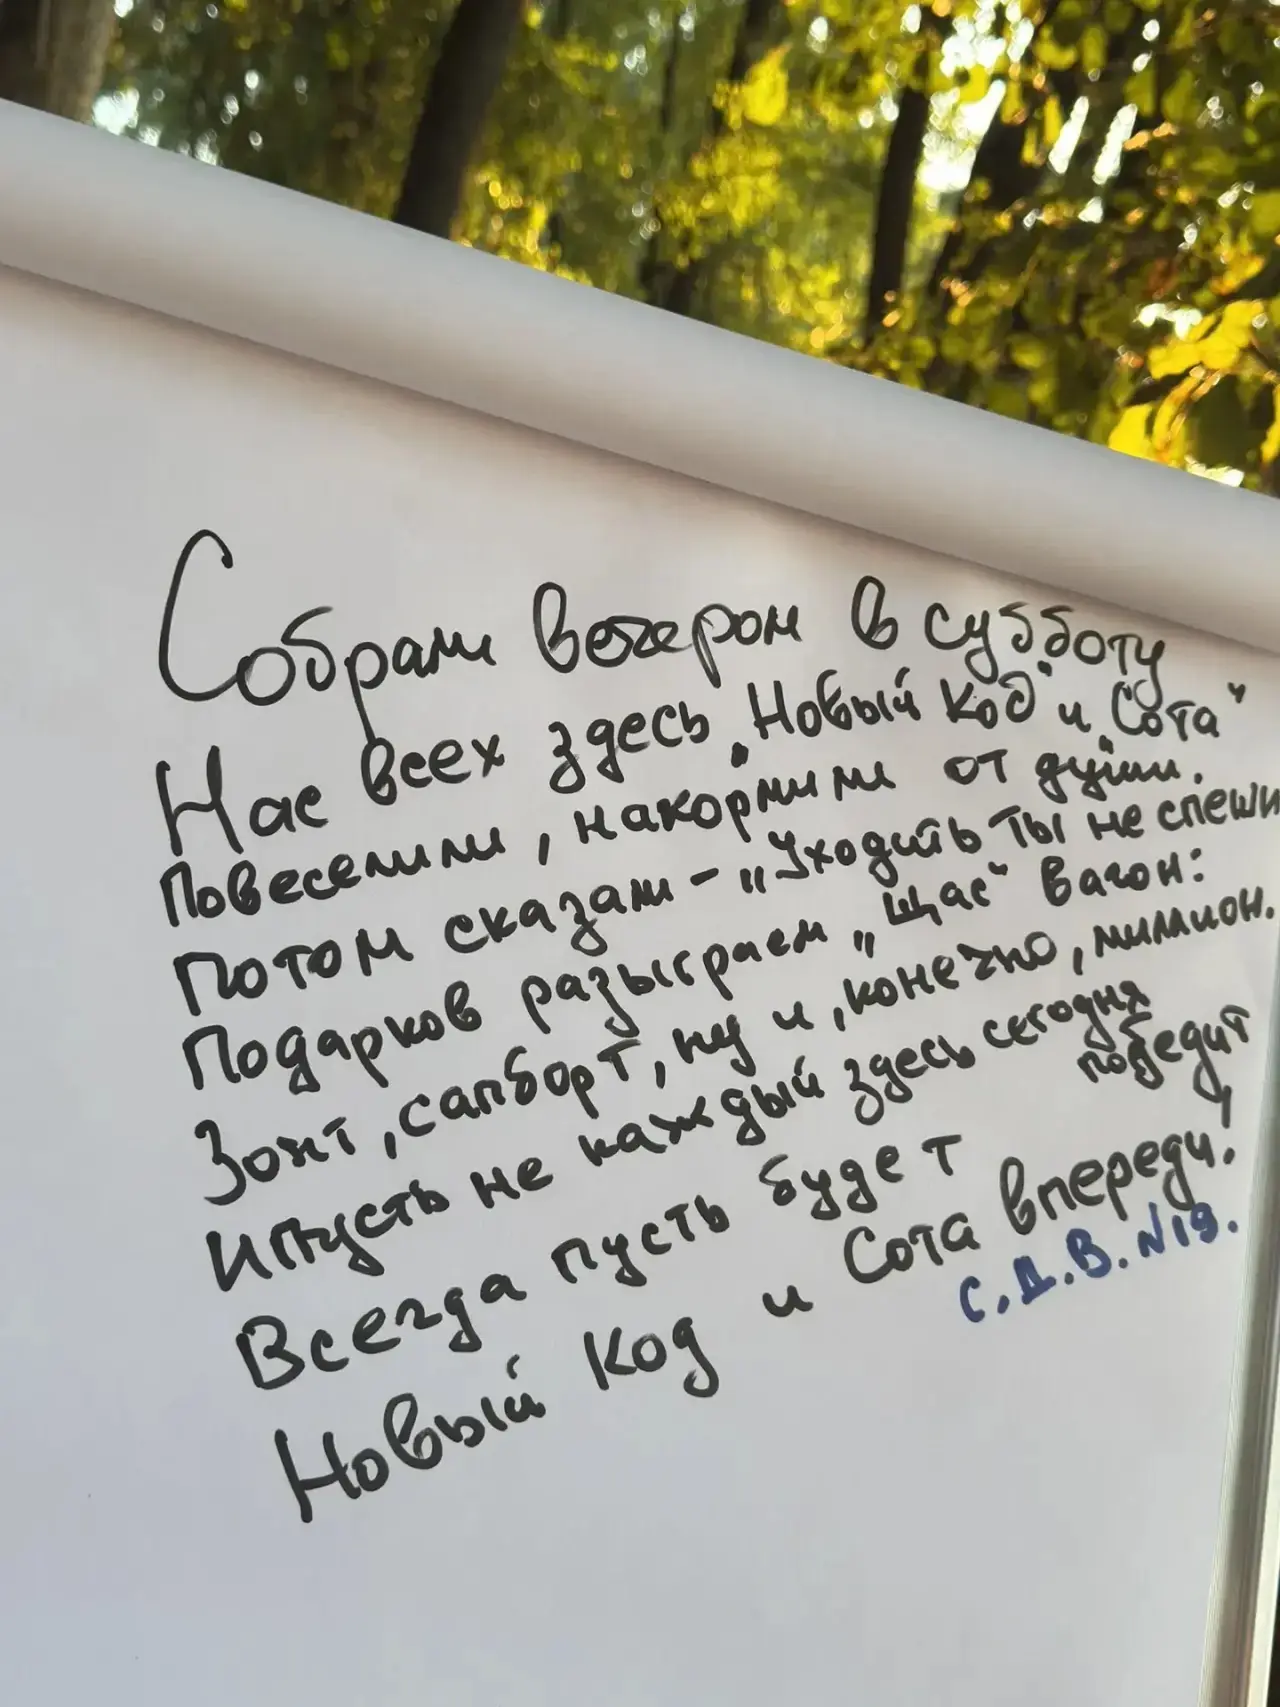 Собрали вечером в субботу
Нас всех здесь „Новый Код" и „Сота"
Повеселили, накормили от души.
Потом сказали - „Уходить ты не спеши
Подарков разыграем „щас" вагон:
Зонт, сапборт, ну и, конечно, миллион.
И пусть не каждый здесь сегодня победит,
Всегда пусть будет
Новый Код и Сота впереди!
С.Д.В. №19.